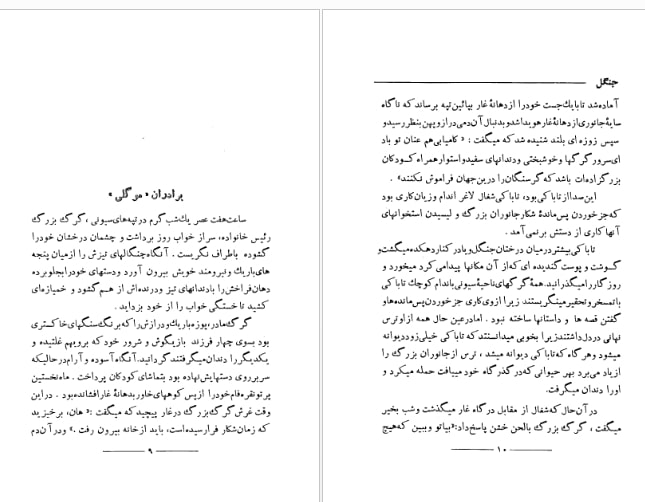 برادران «موگلی»
ساعت هفت عصر یك شب گرم در تپه های سیونی ، گرگ بزرگ
رئیس خانواده، سر از خواب روز برداشت و چشمان درخشان خود را
گشوده باطراف نگریست . آنگاه چنگالهای تیزش را از میان پنجه
های باریك و نیرومند خویش بیرون آورد و دستهای خود را بجلو برده
دهان فراخش را با دندانهای تیز و درنده اش از هم گشود و خمیازه ای
کشید تا خستگی خواب را از خود بزداید .
گرگ مادر، پوزه باریك و درازش را که برنگ سنگهای خاکستری
بود بسوی چهار فرزند بازیگوش و شرور خود که برویهم غلتیده و
یکدیگر را دندان میگرفتند گردانید. آنگاه آسوده و آرام در حالیکه
سر بر روی دستهایش نهاده بود بتماشای کودکان پرداخت . ماه نخستین
پرتو نقره فام خود را از پس کوههای خار، بدهانهٔ غار افشانده بود . در این
وقت غرش گرگ بزرگ در غار پیچید که میگفت :« هان، برخیزید
که زمان شکار فرا رسیده است، باید از خانه بیرون رفت .» و در آن دم
۹
جنگل
آماده شد تا بایك جست خود را از دهانهٔ غار بپائین تپه برساند که ناگاه
سایهٔ جانوری از دهانهٔ غار هویدا شد و بدنبال آن دمی دراز و پهن بنظر رسید و
سپس زوزه ای بلند شنیده شد که میگفت : « کامیابی هم عنان تو باد
ای سرور گرگها و خوشبختی و دندانهای سفید و استوار همراه کودکان
بزرگزاده ات باشد که گرسنگان را در این جهان فراموش نکنند» .
این صدا از تاباکی بود، تاباکی شغال لاغر اندام و زیان کاری بود
که جز خوردن پس ماندهٔ شکار جانوران بزرگ و لیسیدن استخوانهای
آنها کاری از دستش بر نمی آمد .
تاباکی بیشتر در میان درختان جنگل و یا در کنار دهکده میگشت و
گوشت و پوست گندیده ای که از آن مکانها پیدا می کرد میخورد و
روزگار را میگذرانید. همهٔ گرگهای ناحیهٔ سیونی با اندام کوچك تاباکی
با تمسخر و تحقیر مینگریستند زیرا از وی کاری جز خوردن پس مانده ها و
گفتن قصه ها و داستانها ساخته نبود . اما در عین حال همه از او ترس
نهانی در دل داشتند زیرا بخوبی میدانستند که تاباکی خیلی زود دیوانه
میشود و هرگاه که تاباکی دیوانه میشد ، ترس از جانوران بزرگ را
از یاد می برد بهر حیوانی که در گذرگاه خود مییافت حمله میکرد و
اورا دندان میگرفت.
در آن حال که شغال از مقابل درگاه غار میگذشت و شب بخیر
میگفت ، گرگ بزرگ با لحن خشن پاسخ داد:«بیا تو و ببین که هیچ
۱۰